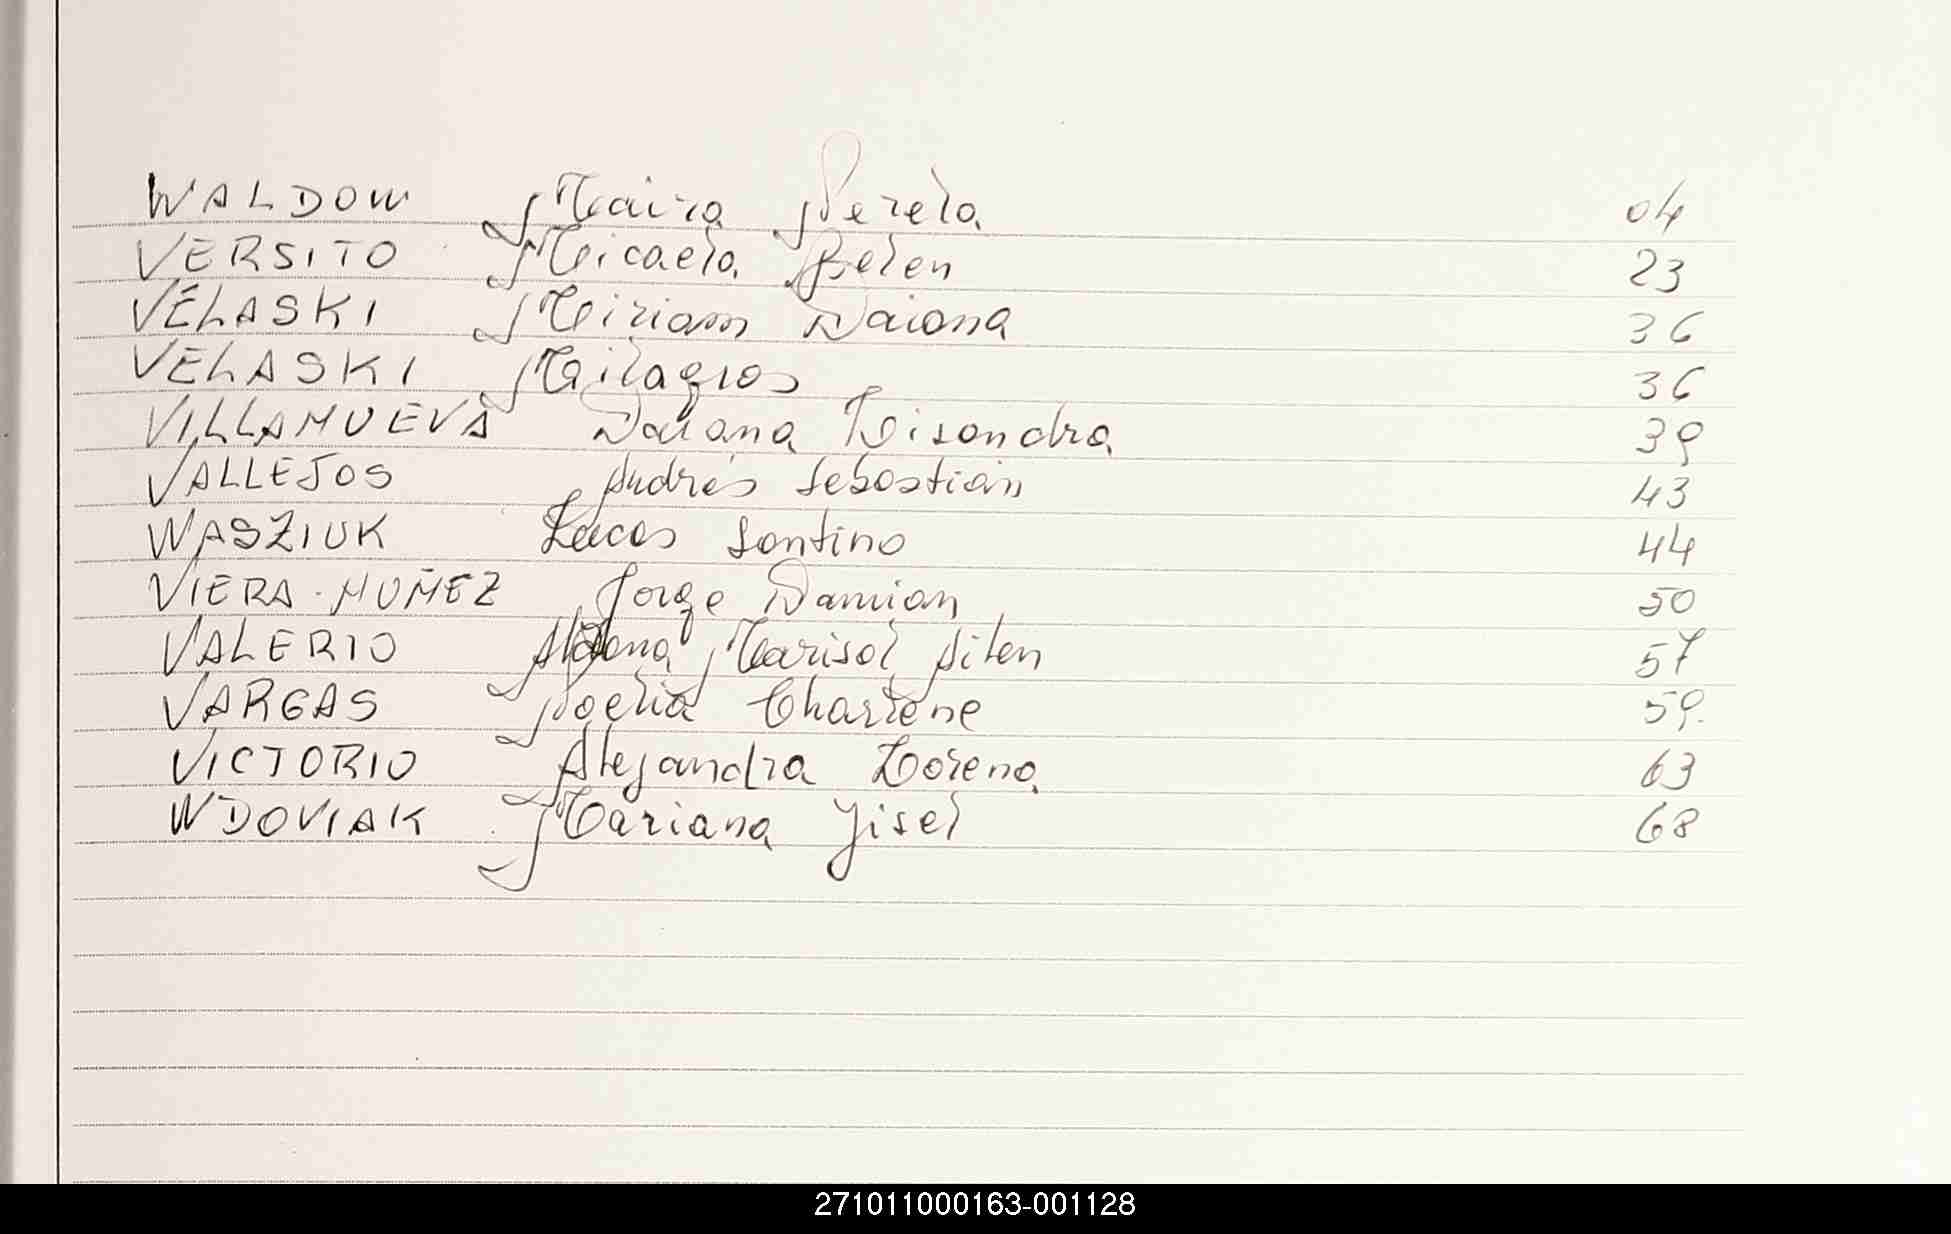 WALDOW Maira Perela 04
VERSITO Micaela Belen 23
VELASKI Miriam Daiana 36
VELASKI Milagros 36
VILLANUEVA Daiana Lisandra 39
VALLEJOS Andrés Sebastián 43
WASZIUK Lucas Santino 44
VIERA-NUÑEZ Jorge Damian 50
VALERIO Marisol Ailen 57
VARGAS Noelia Charlene 59.
VICTORIO Alejandra Lorena 63
WDOVIAK Mariana Gisel 68
271011000163-001128